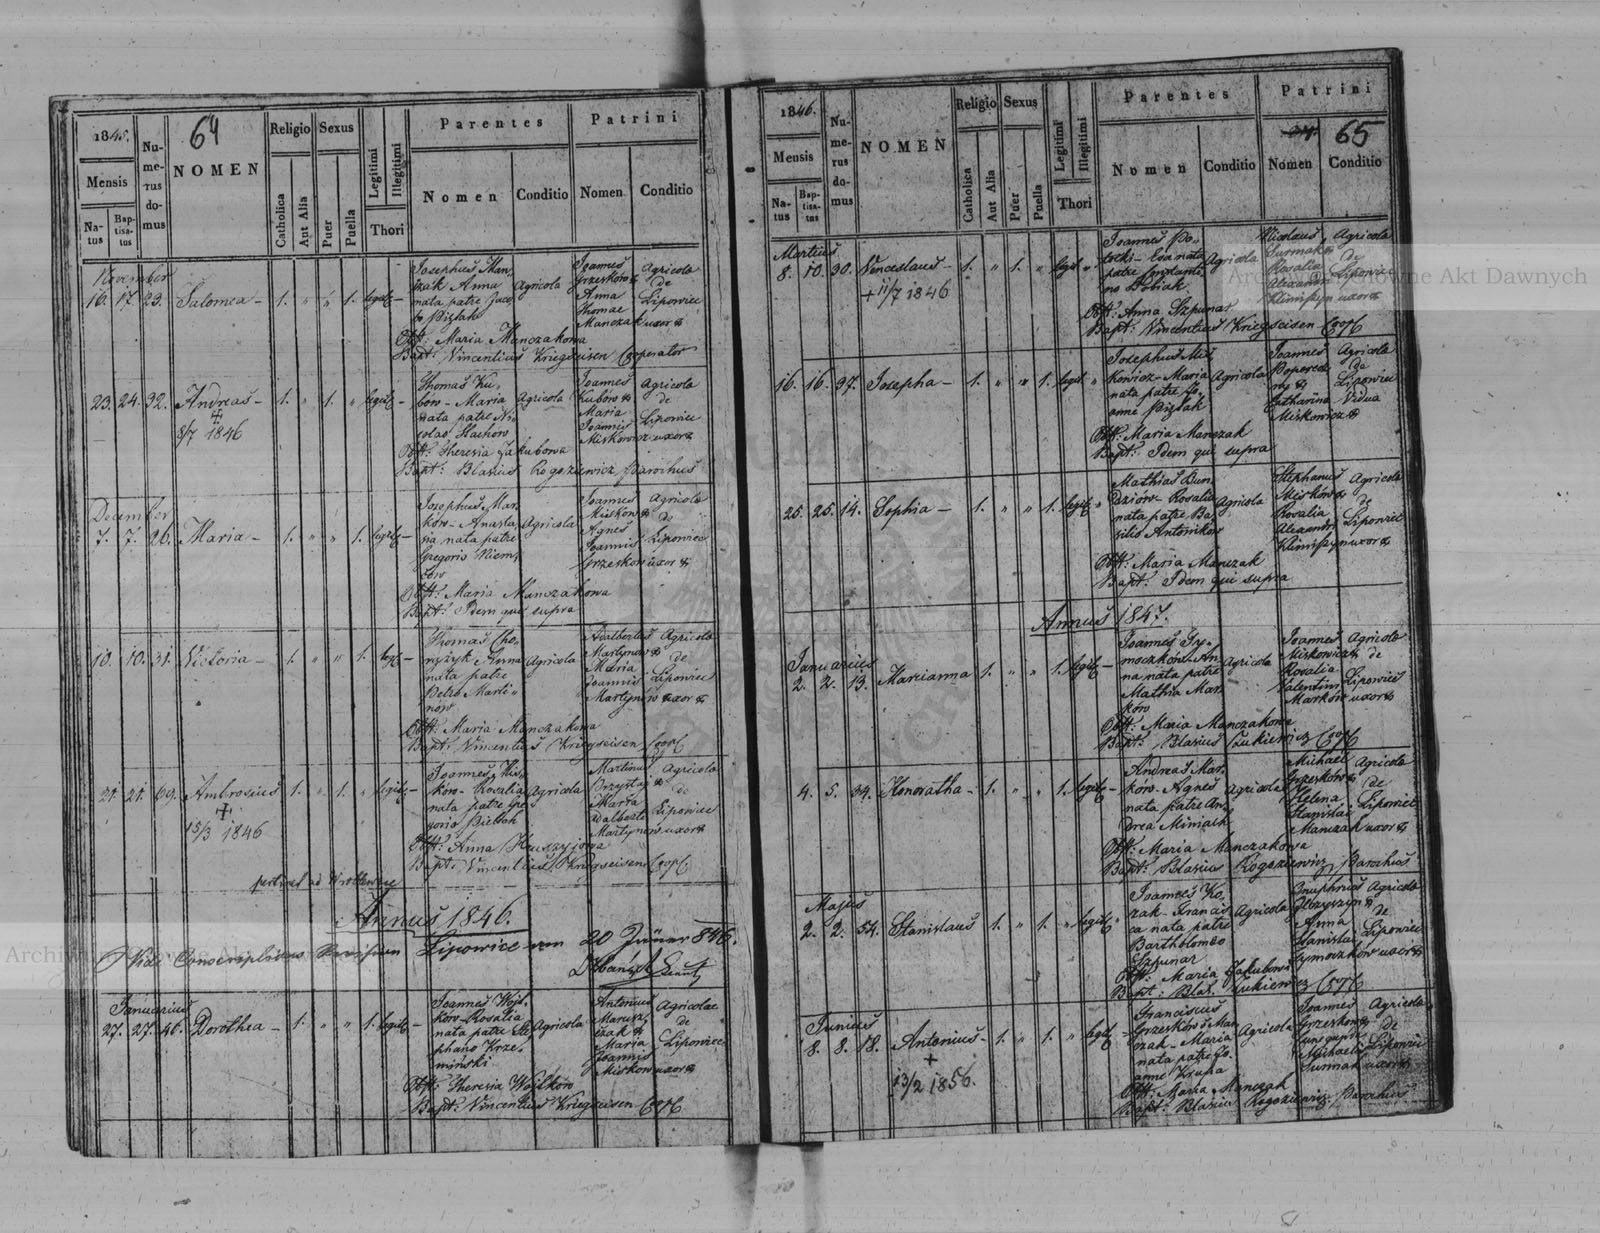 1845.
64
Mensis
Natus
Baptisatus
Numerus domus
NOMEN
Religio
Catholica
Aut Alia
Sexus
Puer
Puella
Legitimi
Illegitimi
Thori
Parentes
Nomen
Conditio
Patrini
Nomen
Conditio
November
16. 17. 23. Salomea - 1. " " 1. legit. -
Josephus Man,
czak Anna
nata patre Jaco,
bo
Agricola
Joannes
Grzesków &
Anna
Thomae
Manczak uxor &
Agricola
de
Lipowiec
Obst: Maria Manczakowa
Bapt: Vincentius Kriegseisen Cooperator
23. 24. 32. Andreas - 1. " 1. " legit. -
8/7 1846
Thomas Ku,
bów - Maria
nata patre Ni,
colao Stachów
Agricola
Joannes
Kubów &
Maria
Joannis
Miskowicz uxor &
Agricola
de
Lipowiec
Obst: Theresia Jakubowa
Bapt: Blasius Rogoziewicz Parochus
December
7. 7. 26. Maria - 1. " " 1. legit. -
Josephus Mar,
ków - Anasta,
sia nata patre
Gregorio Niem,
ców
Agricola
Joannes
Misków &
Agnes
Joannis
Grzesków uxor &
Agricola
de
Lipowiec
Obst: Maria Manczakowa
Bapt: Idem qui supra
10. 10. 31. Victoria - 1. " " 1. legit. -
Thomas Cho,
Anna
nata patre
Petro Marti,
nów
Agricola
Adalbertus
Martynow &
Maria
Joannis
Martynów uxor &
Agricola
de
Lipowiec
Obst: Maria Manczakowa
Bapt: Vincentius Kriegseisen Coop.
21. 21. 69. Ambrosius 1. " 1. " legit. -
15/3 1846
Joannes Mis,
ków - Rosalia
nata patre Gre,
gorio
Agricola
Martinus
&
Maria
Adalberti
Martynow uxor &
Agricola
de
Lipowiec
Obst: Anna
Bapt: Vincentius Kriegseisen Coop.
Annus 1846.
Vidi Lipowice 20 Jäner 846.
Januarius
27. 27. 46. Dorothea - 1. " " 1. legit. -
Joannes Wojt,
ków - Rosalia
nata patre Ste,
phano Krze,
minski
Agricola
Antonius
Marusz,
czak &
Maria
Joannis
Misków uxor &
Agricolae
de
Lipowiec
Obst: Theresia Wojtków
Bapt: Vincentius Kriegseisen Coop.
1846.
65
Mensis
Natus
Baptisatus
Numerus domus
NOMEN
Religio
Catholica
Aut Alia
Sexus
Puer
Puella
Legitimi
Illegitimi
Thori
Parentes
Nomen
Conditio
Patrini
Nomen
Conditio
Martius
8. 10. 30. Venceslaus - 1. " 1. " legit. "
+ 11/7 1846
Joannes Po,
tocki - Eva nata
patre Constanti,
no
Agricola
Nicolaus
Surmak &
Rosalia
Alexandri
uxor &
Agricola
de
Lipowiec
Obst: Anna Szpunar
Bapt: Vincentius Kriegseisen Coop.
16. 16. 37. Josepha - 1. " " 1. legit. "
Josephus Mis,
kowicz - Maria
nata patre Jo,
anne
Agricola
Joannes
&
Catharina
Miskowicz &
Agricola
de
Lipowiec
Vidua
Obst: Maria Manczak
Bapt: Idem qui supra
25. 25. 14. Sophia - 1. " " 1. legit. "
Mathias Dun,
Rosalia
nata patre Ba,
silio Antoników
Agricola
Stephanus
Misków &
Rosalia
Alexandri
uxor &
Agricola
de
Lipowiec
Obst: Maria Manczak
Bapt: Idem qui supra
Annus 1847.
Januarius
2. 2. 13. Marianna 1. " " 1. legit. -
Joannes Ty,
moczków - An,
na nata patre
Mathia Mar,
ków
Agricola
Joannes
Miskowicz &
Rosalia
Valentini
Marków uxor &
Agricola
de
Lipowiec
Obst: Maria Manczakowa
Bapt: Blasius Łukiewicz Coop.
4. 5. 34. Honoratha - 1. " " 1. legit. -
Andreas Mar,
ków - Agnes
nata patre An,
drea
Agricola
Michael
Grzesków &
Helena
Stanislai
Manczak uxor &
Agricola
de
Lipowiec
Obst: Maria Manczakowa
Bapt: Blasius Rogoziewicz Parochus
Majus
2. 2. 54. Stanislaus 1. " 1. " legit. "
Joannes Ko,
zak - Francis,
ca nata patre
Bartholomeo
Szpunar
Agricola
Onuphrius
&
Anna
Stanislai
Tymoczków uxor &
Agricola
de
Lipowiec
Obst: Maria Jakubowa
Bapt: Blas. Łukiewicz Coop.
Junius
8. 8. 18. Antonius - 1. " 1. " legit. -
+
13/2 1856.
Franciscus
Grzesków Man,
czak - Maria
nata patre Jo,
anne Krupa
Agricola
Joannes
Grzesków &
Cunegundis
Michaelis
Surmak uxor &
Agricola
de
Lipowiec
Obst: Maria Manczak
Bapt: Blasius Rogoziewicz Parochus
Archiwum Główne Akt Dawnych
Archiwum Główne Akt Dawnych